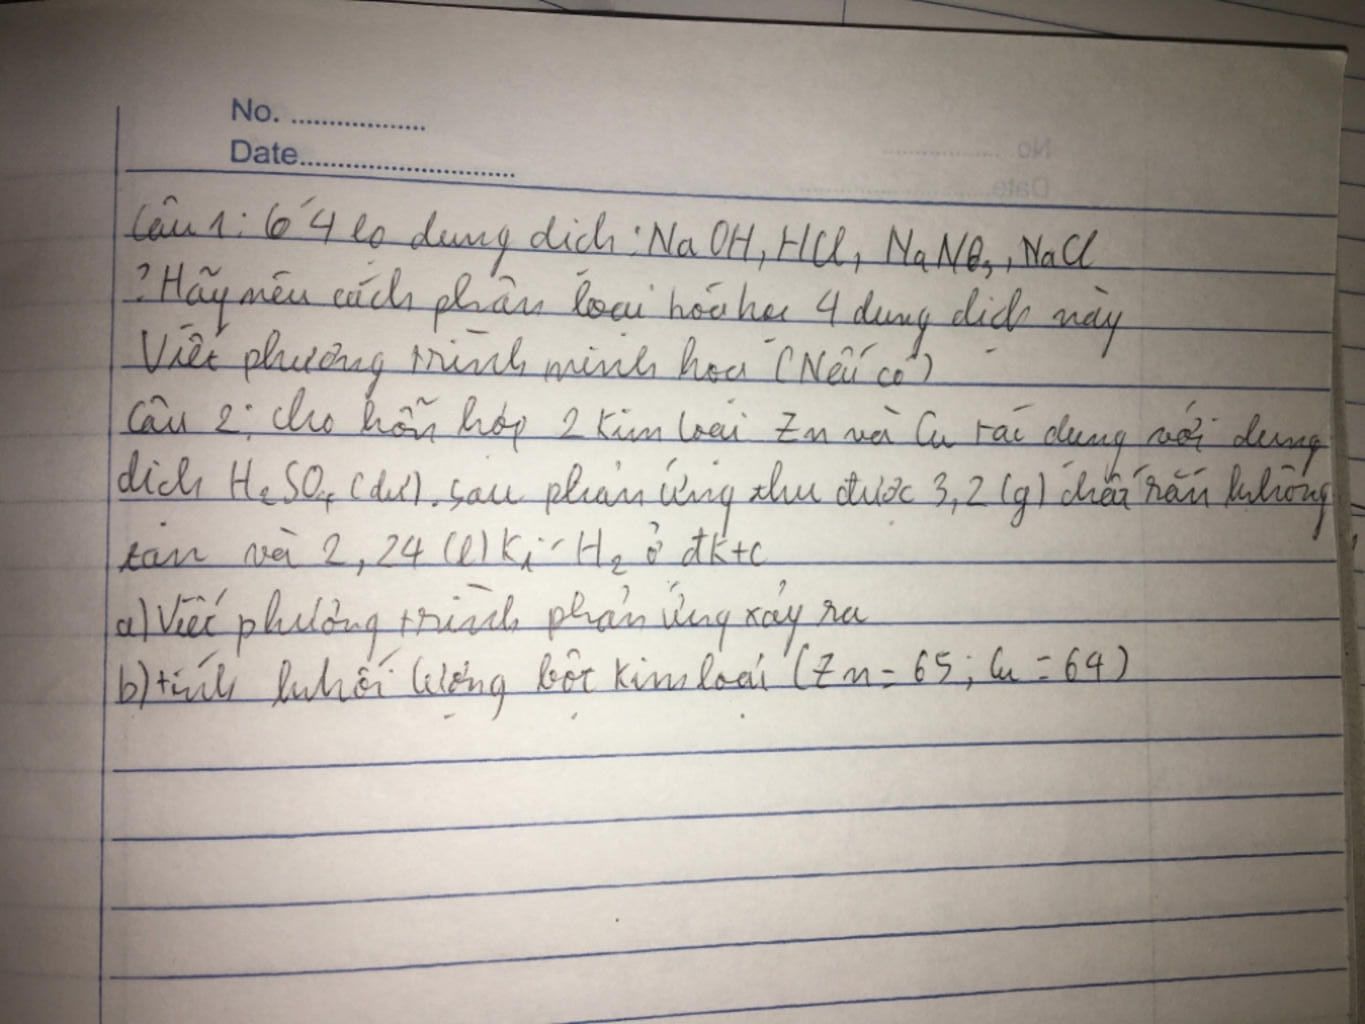 No. ..................
Date..............................
Câu 1: Có 4 lọ dung dịch: NaOH, HCl, NaNO3, NaCl
? Hãy nêu cách phân loại hóa học 4 dung dịch này
Viết phương trình minh hoạ (Nếu có)
Câu 2: Cho hỗn hợp 2 kim loại Zn và Cu tác dụng với dung
dịch H2SO4 (dư). sau phản ứng thu được 3,2 (g) chất rắn không
tan và 2,24 (l) Kí H2 ở đktc
a) Viết phương trình phản ứng xảy ra
b) tính khối lượng bột kim loại (Zn = 65; Cu = 64)